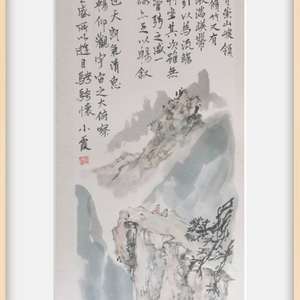 有崇山峻領
脩竹又有
激湍暎帶
引以為流觴
列坐其次雖無
管弦之盛一
詠亦足以暢敘
也天朗氣清惠
暢仰觀宇宙之大俯察
之盛所以遊目騁懷 小霞